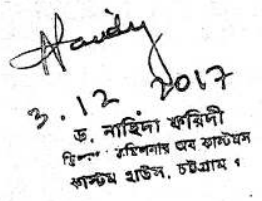 3.12 2017
ড. নাহিদা ফরিদী
কমিশনার অব কাস্টমস
কাস্টম হাউস, চট্টগ্রাম ।